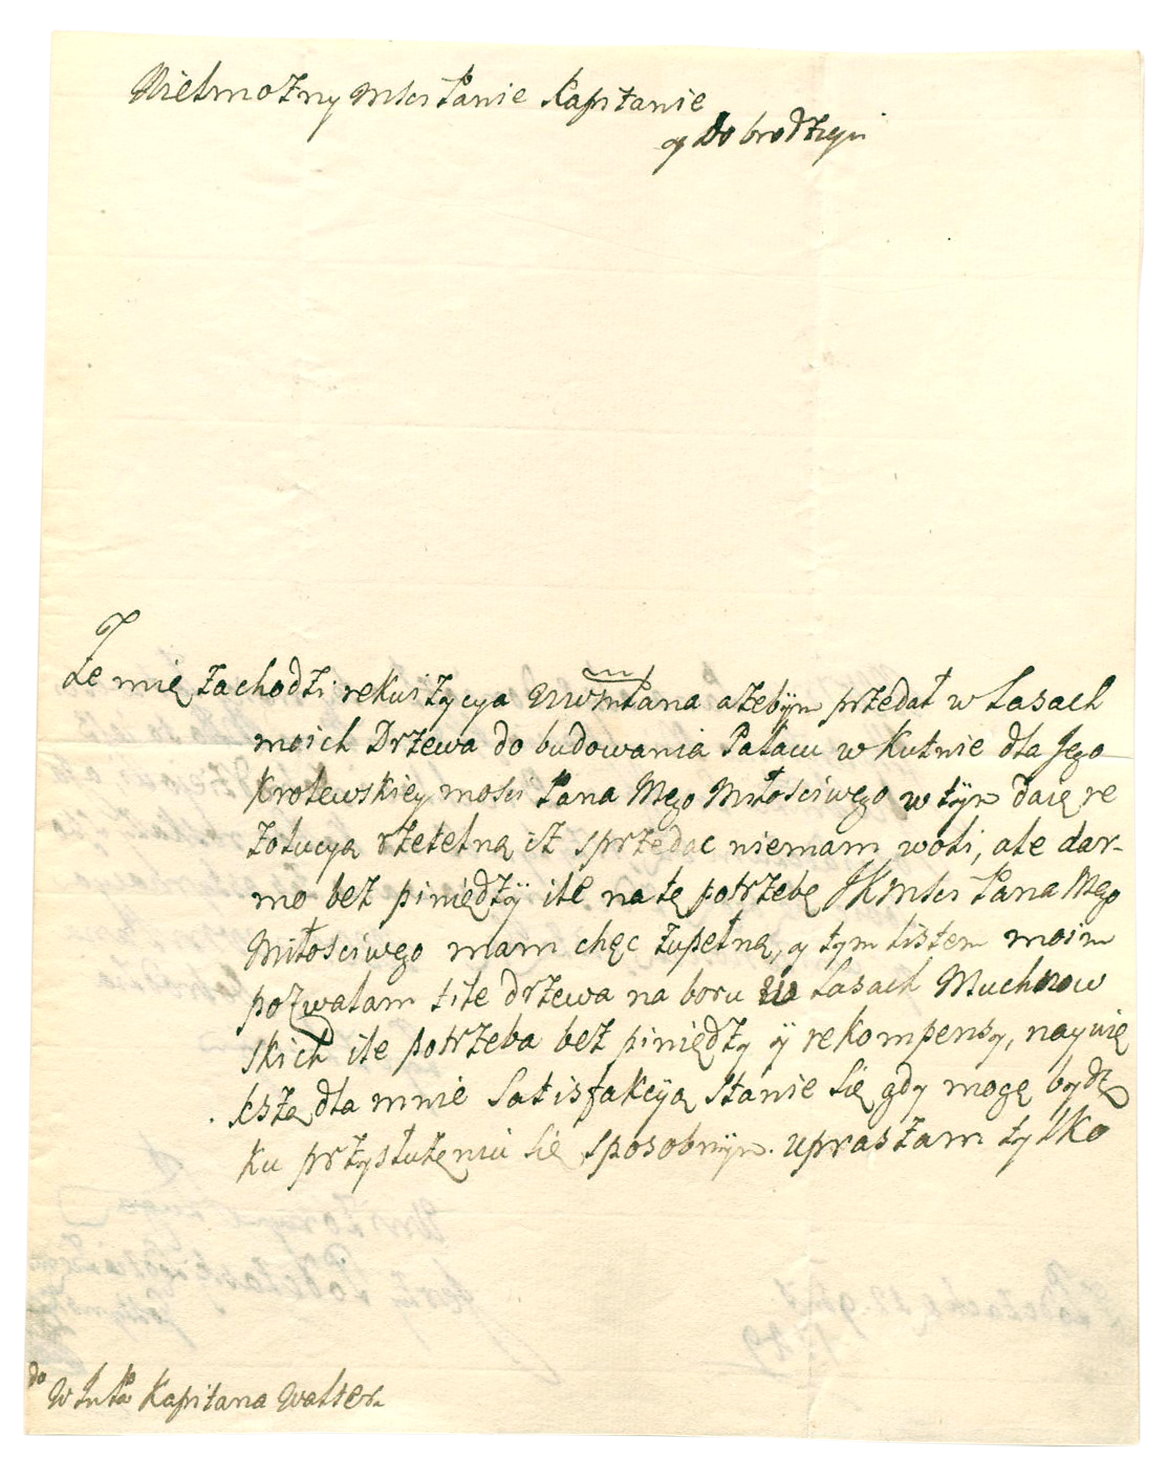 Wielmozny Mści Panie Kapitanie
y Dobrodzieju
Ze mię zachodzi rekwizycya WWMPana azebÿm przedał w Lasach
moich Drzewa do budowania Pałacu w Kutnie dla Jego
Krolewskiey mości Pana Mego Miłościwego w tÿm daię re
zolucyą rzetelną iż sprzedac niemam woli, ale dar-
mo bez piniędzÿ ile na tę potrzebę JKMści Pana Mego
Miłościwego mam chęc zupełną, y tym listem moim
pozwalam tile drzewa na boru w Lasach Muchnow
skich ile potrzeba bez piniędzy ÿ rekompensy, naywię
kszą dla mnie Satisfakcÿą Stanie Się gdy mogę bydz
ku przysłużęniu Się Sposobnÿm. upraszam tylko
do W Jm Pa Kapitana Walter